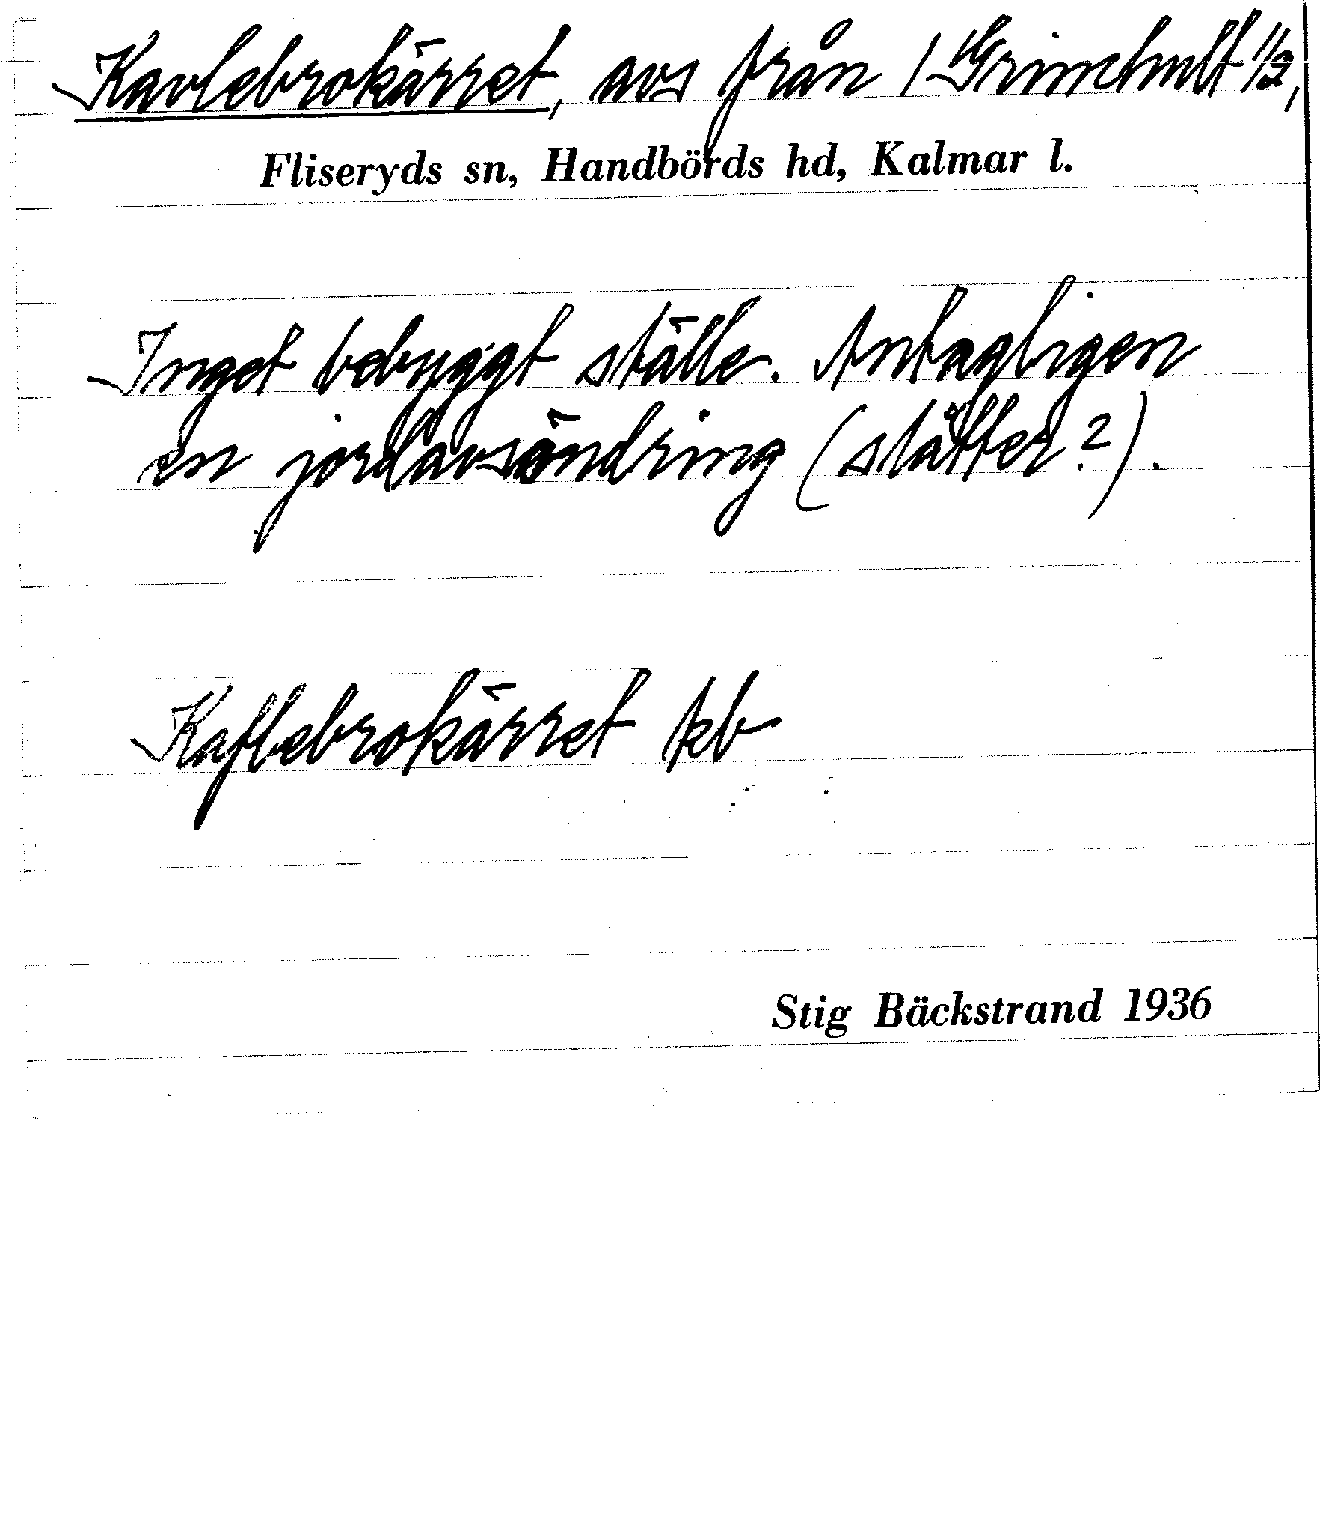 Kavlebrokärret, avs från 1 Grimhult 1/2,
Fliseryds sn, Handbörds hd, Kalmar l.
Inget bebyggt ställe. Antagligen
en jordavsöndring (slåtter?).
Kaflebrokärret kb
Stig Bäckstrand 1936